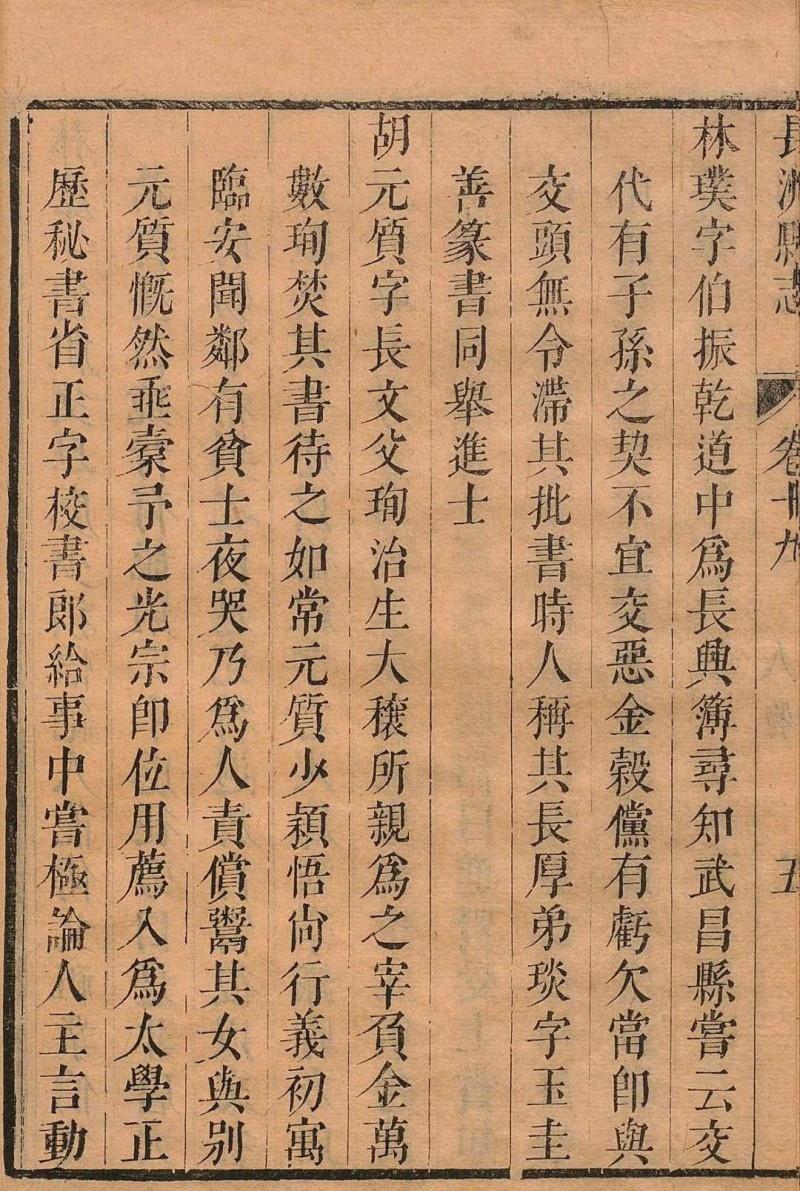 長洲縣志 卷十九 人物 五
林璞字伯振乾道中爲長興簿尋知武昌縣嘗云交
代有子孫之契不宜交惡金穀儻有虧欠當卽與
交頭無令滯其批書時人稱其長厚弟琰字玉圭
善篆書同舉進士
胡元質字長文父珣治生大穰所親爲之宰負金萬
數珣焚其書待之如常元質少穎悟尙行義初寓
臨安聞鄰有貧士夜哭乃爲人責償鬻其女與别
元質慨然垂橐予之光宗卽位用薦入爲太學正
歷秘書省正字校書郎給事中嘗極論人主言動